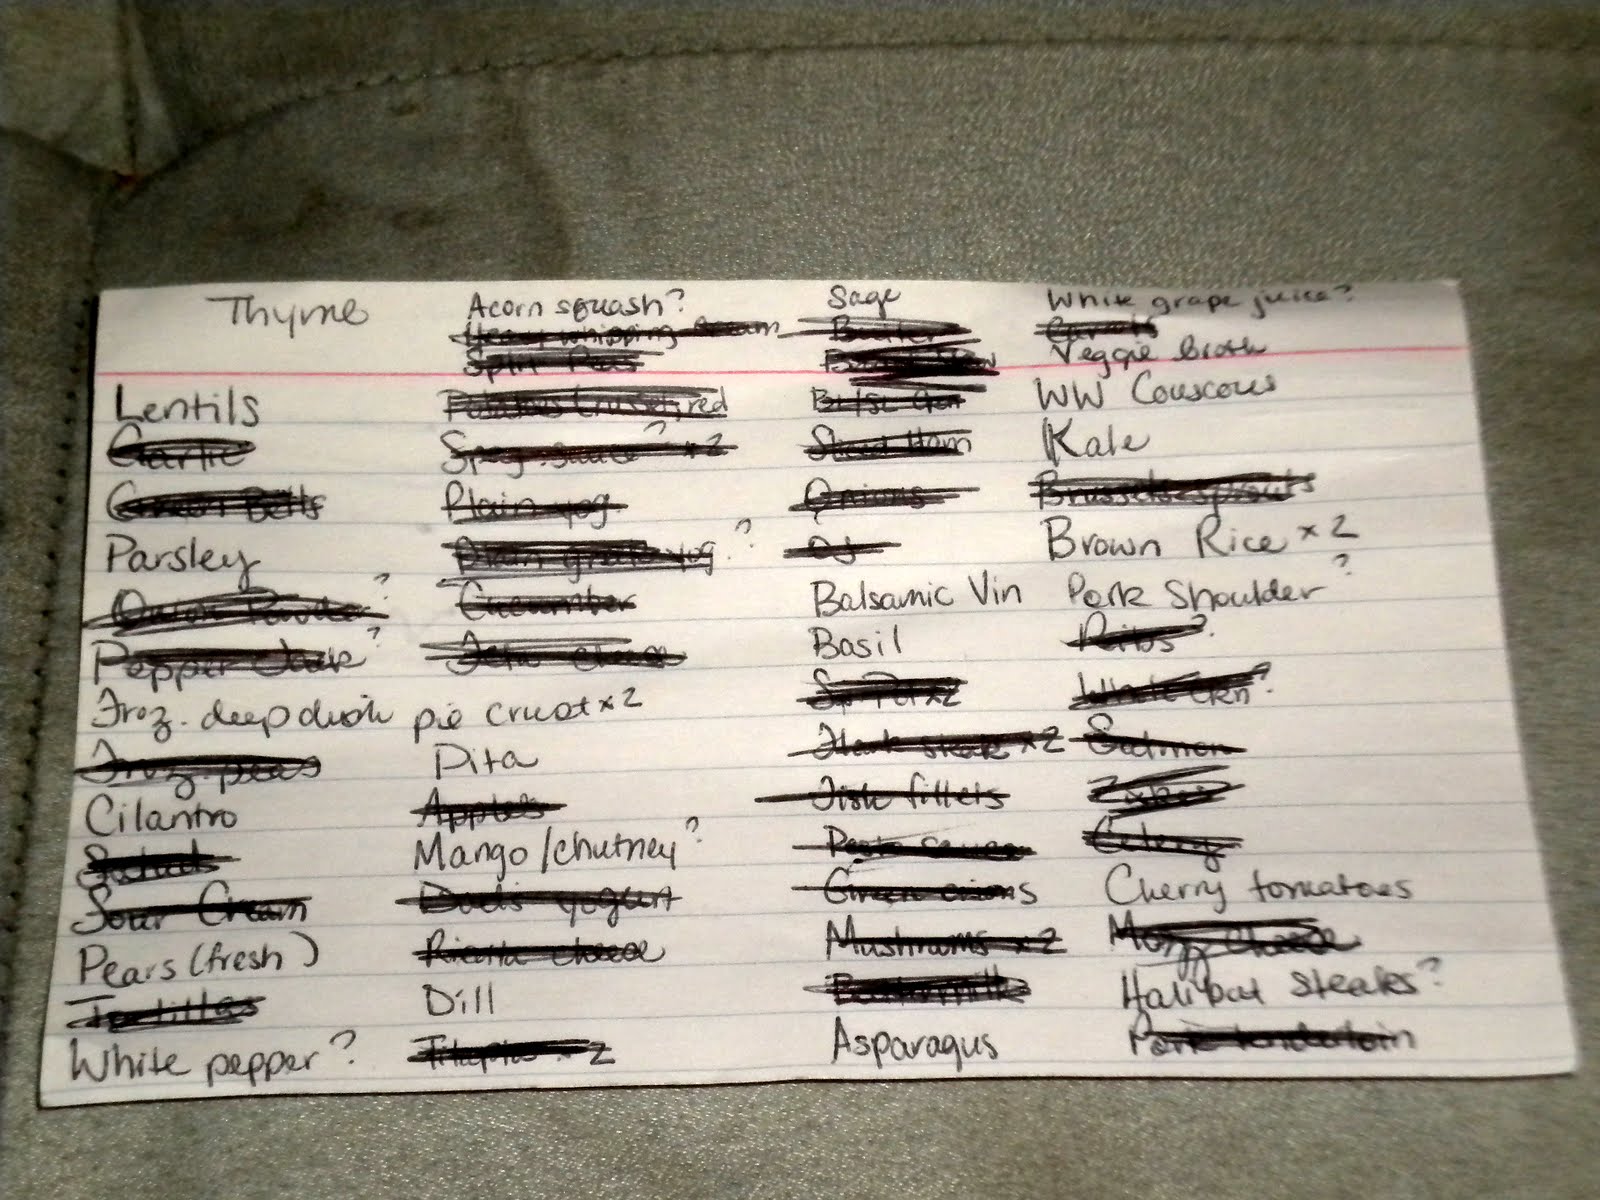 Thyme Acorn squash? Sage White grape juice?
Heavy whipping cream Butter Carrots
Split Peas Veggie broth
Lentils Potatoes red WW Couscous
Garlic Spag. sauce? x2 Sliced Ham Kale
Green Bells Plain yog Onions Brussels sprouts
Parsley Plain greek yog.? OJ Brown Rice x2
Onion Powder? Cucumber Balsamic Vin Pork Shoulder?
Pepper Jack? Feta cheese Basil Ribs?
Froz. deep dish pie crust x2 Sw Pot x2 Whole ckn?
Froz. peas Pita Flank steak x2 Salmon
Cilantro Apples Fish fillets
Mango/chutney? Pasta sauce Celery
Sour Cream Dad's yogurt Green onions Cherry tomatoes
Pears (fresh) Ricotta cheese Mushrooms x2 Mozz cheese
Tortillas Dill Buttermilk Halibut steaks?
White pepper? Tilapia x2 Asparagus Pork tenderloin